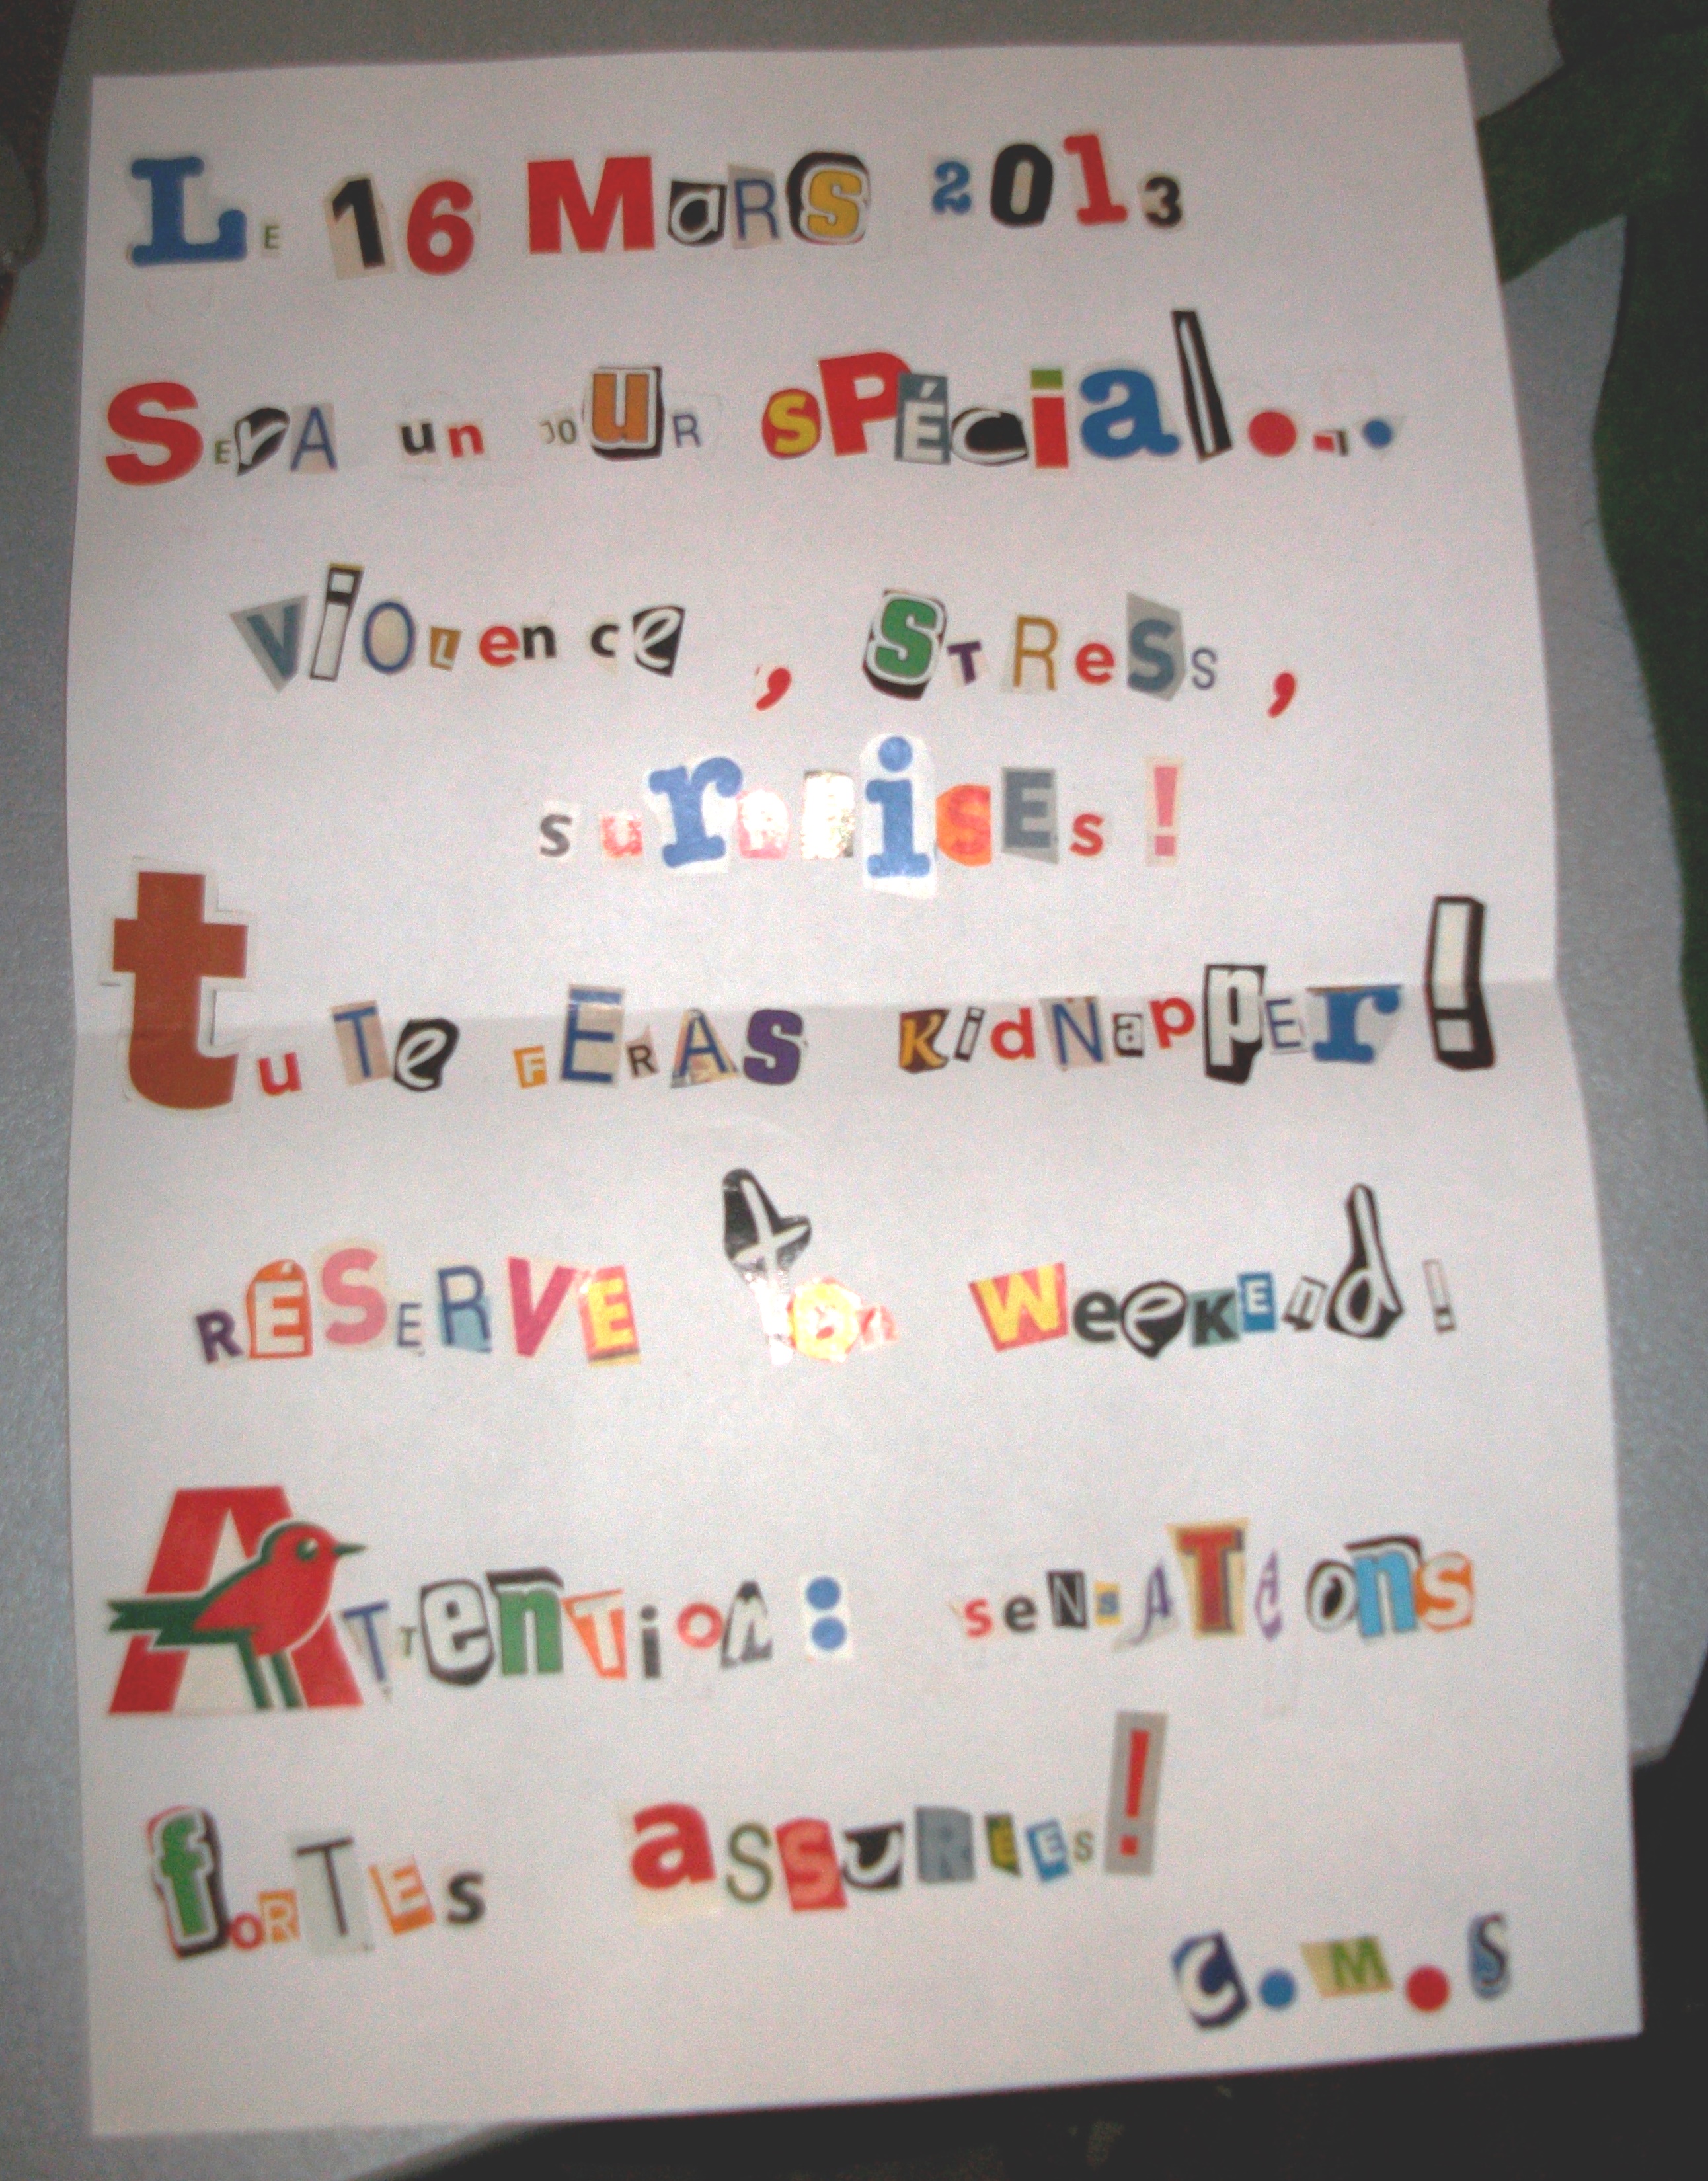 LE 16 MaRS 2013
SErA un JOUR SPÉcial...
ViOLence, STReSS,
surprisEs !
tu Te FERAS KidNapPEr !
RÉSERVE ton WeeKEnd !
ATTenTion : seNsATions
foRTEs aSSuRÉEs !
C.M.S